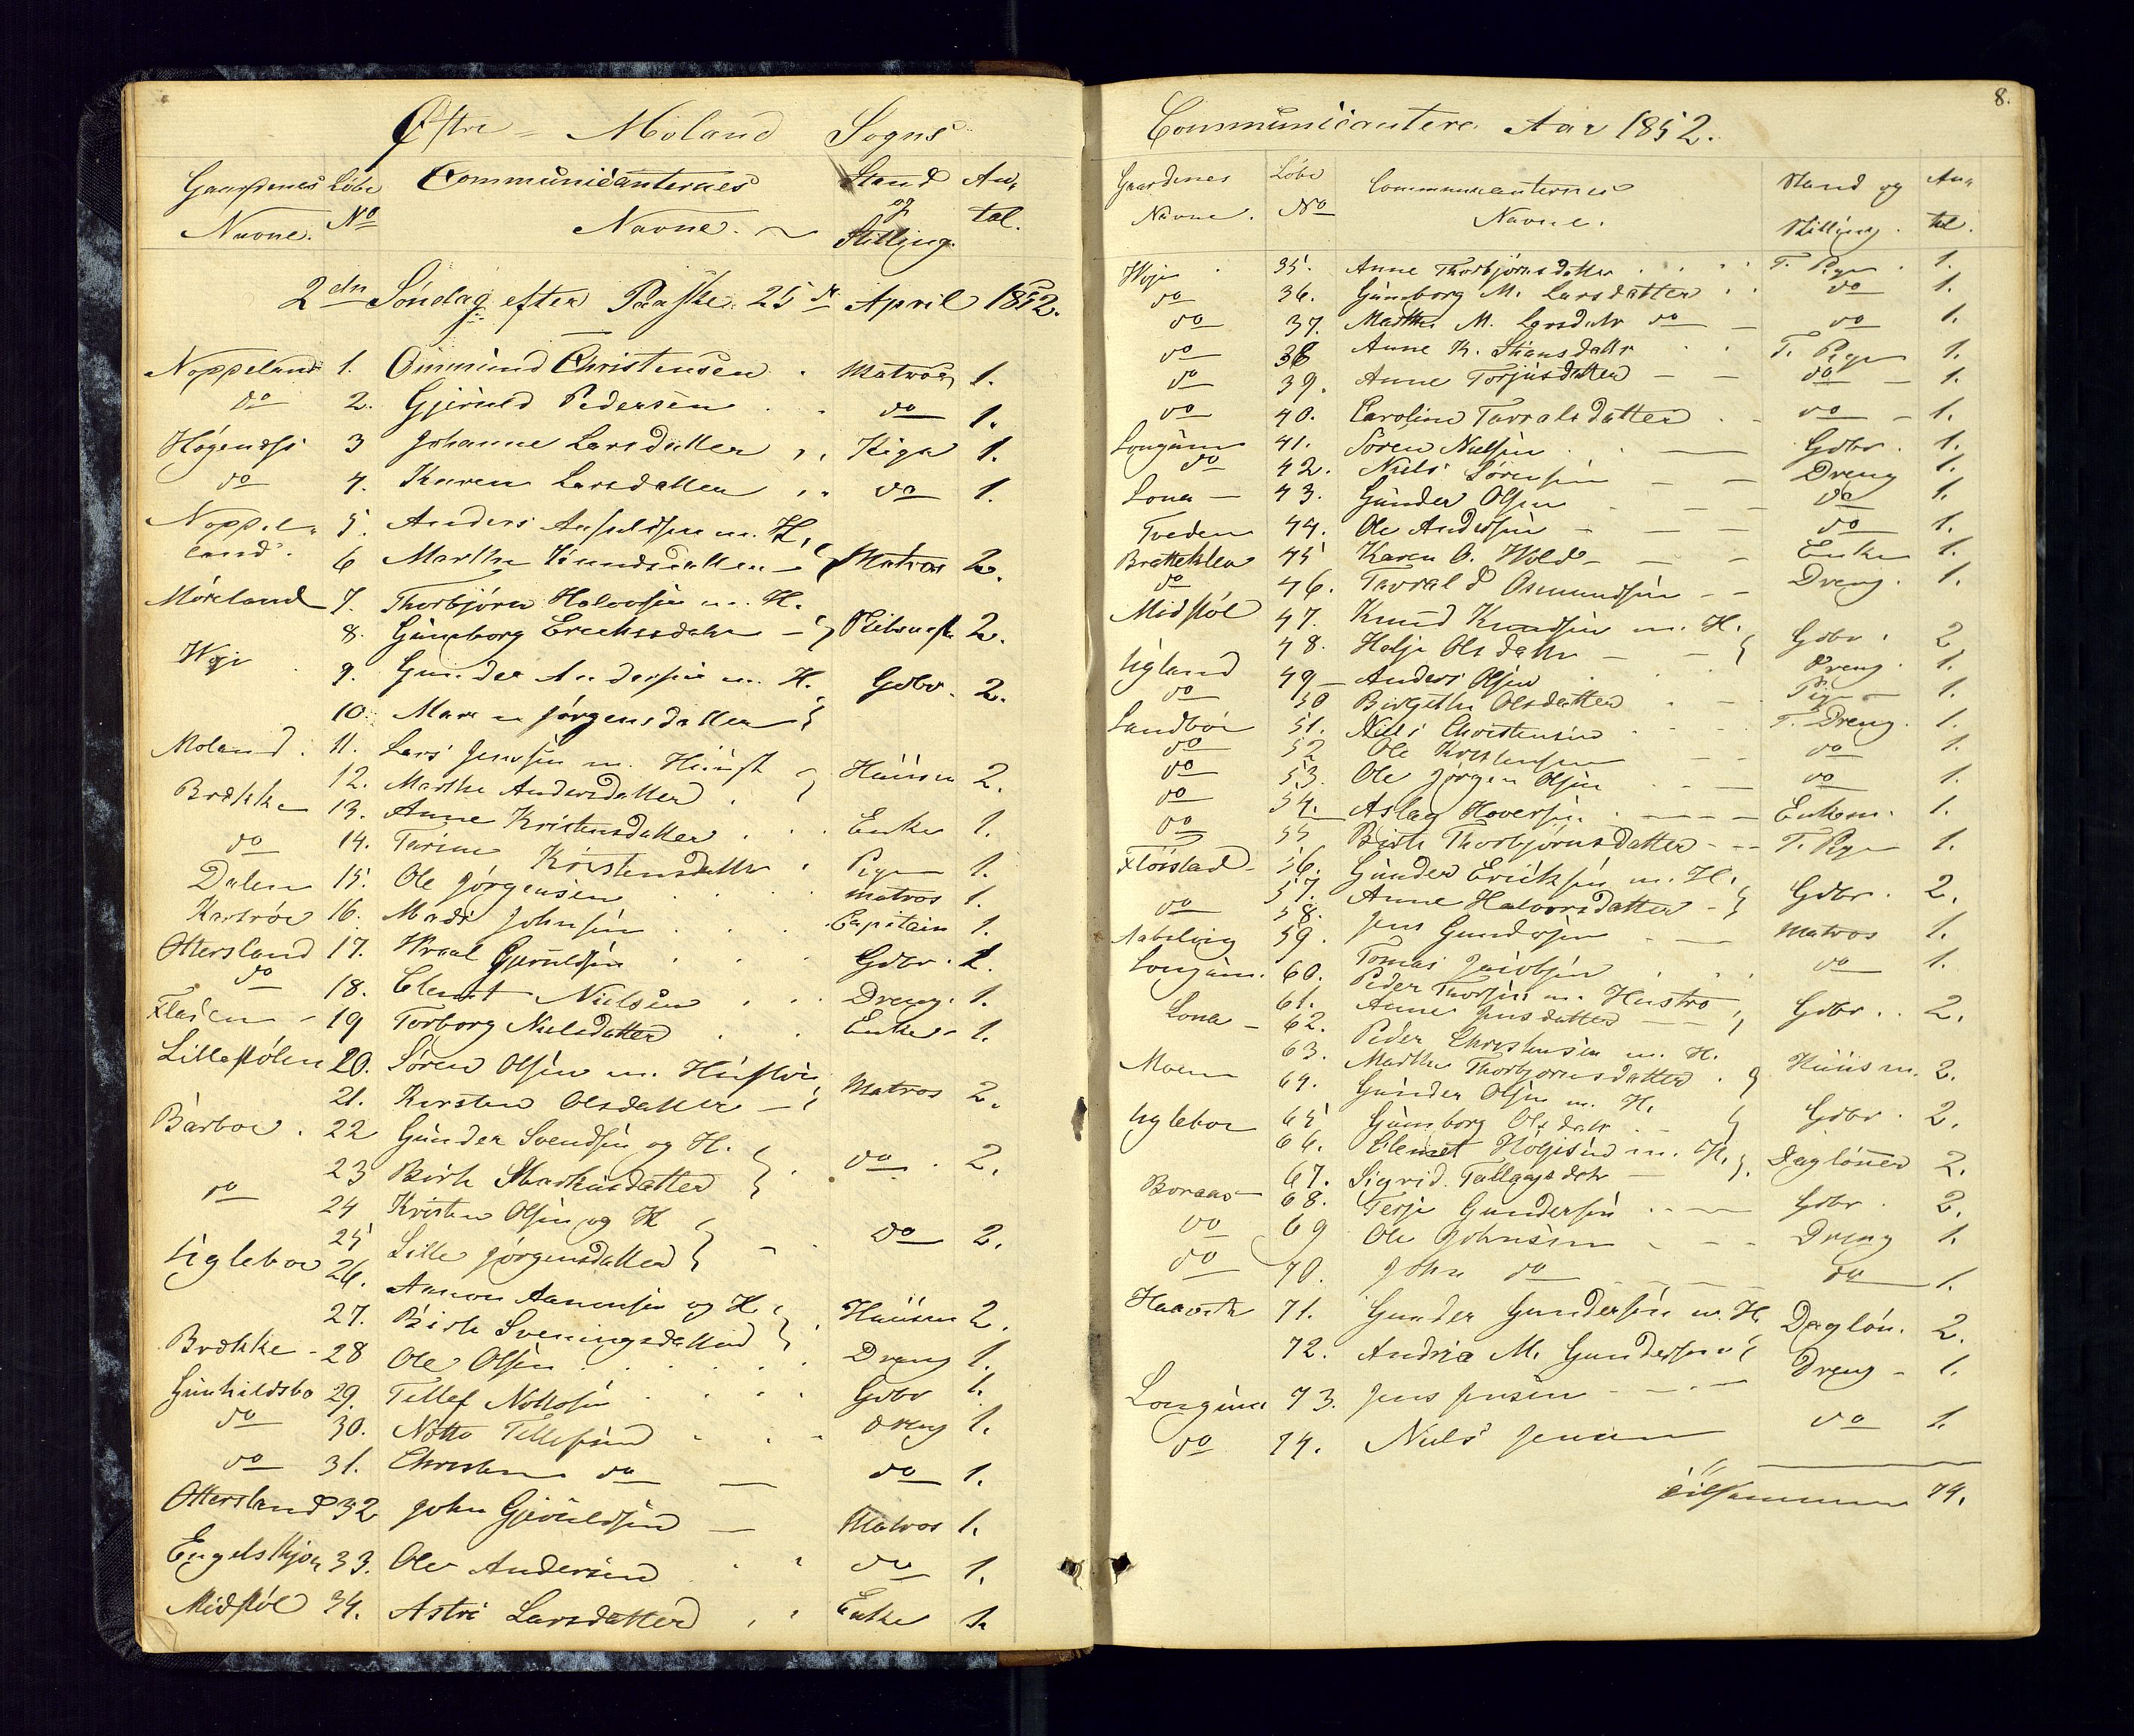 Østre - Moland Sogns
Gaardenes Løbe Communicanternes Stand An-
Navne. No Navne. og tal.
Stilling.
2den Søndag efter Paaske 25de April 1852.
Noppeland 1. Ommund Christensen Matros 1.
do 2. Gjeruld Pedersen do 1.
3 Johanne Larsdatter Piga 1.
do 4. Karen Larsdatter do 1.
Noppel- 5. Anders m. H.
land. 6 Marthe Knudsdatter Matros 2.
Möreland 7. Thorbjörn Halvorsen m. H.
8. Gunborg Erichsdatter 2.
9. Gunder Andersen m. H. Gdbr. 2.
10. Maren Jörgensdatter
Moland. 11. Lars Jensen m. Hüustr
12. Marthe Andersdatter Hüusm 2.
Brække 13. Anne Kristensdatter Enke 1.
do 14. Tarine Kristensdatter Pige 1.
Dalen 15. Ole Jörgensen matros 1.
16. Mads Johnsen Capitain 1.
Ottersland 17. Wraal Gjeruldsen Gdbr. 1.
do 18. Clemt Nielsen Dreng. 1.
19 Torborg Nielsdatter Enke 1.
Lillestölen 20. Sören Olsen m. Hustru
21. Kirsten Olsdatter Matros 2.
Barboe. 22 Günder Svendsen og H.
23 Birte do 2.
do 24 Kristen Olsen og H
25 Lille Jörgensdatter do 2.
Ugleboe 26. Aanon Aanonsen og H.
27. Birte Sveningsdatter Huusm 2.
Brække - 28 Ole Olsen Dreng 1.
Gunhildsbo 29. Tellef Nottosen Gdbr 1.
do 30. Notto Tellefsen dreng 1.
do 31. Christen do do 1.
Ottersland 32 John Gjeruldsen Matros 1.
33. Ole Andersen do 1.
Midstöl 34. Astri Larsdatter Enke 1.
8.
Communicantere. Aar 1852.
Gaardenes Løbe Communicanternes Stand og An-
Navne. No Navne. Stilling. tal.
35. Anne Thorbjörnsdatter T. Pige 1.
do 36. Günborg M. Larsdatter do 1.
do 37. Marthe M. Larsdatr do do 1.
do 38 Anne K. T. Pige 1.
do 39. Anne Torjusdatter do 1.
do 40. Caroline Tarraldsdatter do 1.
Longum 41. Sören Nielsen Gdbr. 1.
do 42. Niels Sörensen Dreng 1.
Lona 43. Günder Olsen do 1.
Tveden 44. Ole Andersen do 1.
Brætteklev 45 Karen O. Hold Enke 1.
do 46. Tarrald Omundsen Dreng. 1.
Midstöl 47. Knud Knudsen m. H.
48. Helje Olsdatter Gdbr. 2
Ugland 49 Anders Olsen Dreng. 1.
do 50 Birgithe Olsdatter Pige 1.
Sandböe 51. Niels Christensen T. Dreng. 1.
do 52 Ole Kristensen do 1.
do 53. Ole Jörgen Olsen do 1.
do 54. Aslag Hoversen Enkem. 1.
do 55 Birte Thorbjörnsdatter T. Pige 1.
Flöistad 56. Günder Eriksen m. H.
57. Anne Halvorsdatter Gdbr. 2.
do 58. Jens Gundersen Matros 1.
59. Tomas Jacobsen do 1.
Longum. 60. Peder m. Hustro
61. Anne Jensdatter Gdbr. 2.
Lona 62. Peder Christensen m. H.
63. Marthe Thorbjörnsdatter Hüusm. 2.
Moen 64. Günder Olsen m. H.
65 Gunborg Olsdatr Gdbr. 2.
Ugleboe 66. Clemet m. H.
67. Sigrid Daglönner 2.
Boraas 68. Terje Gundersen Gdbr 2.
do 69 Ole Johnsen Dreng 1.
do 70. John do do 1.
71. Gunder Gundersen m. H Daglön. 2.
72. Andrea M. Gundersen
Longum 73. Jens Jensen Dreng 1.
do 74. Niels Jensen do 1.
tilsammen 74.